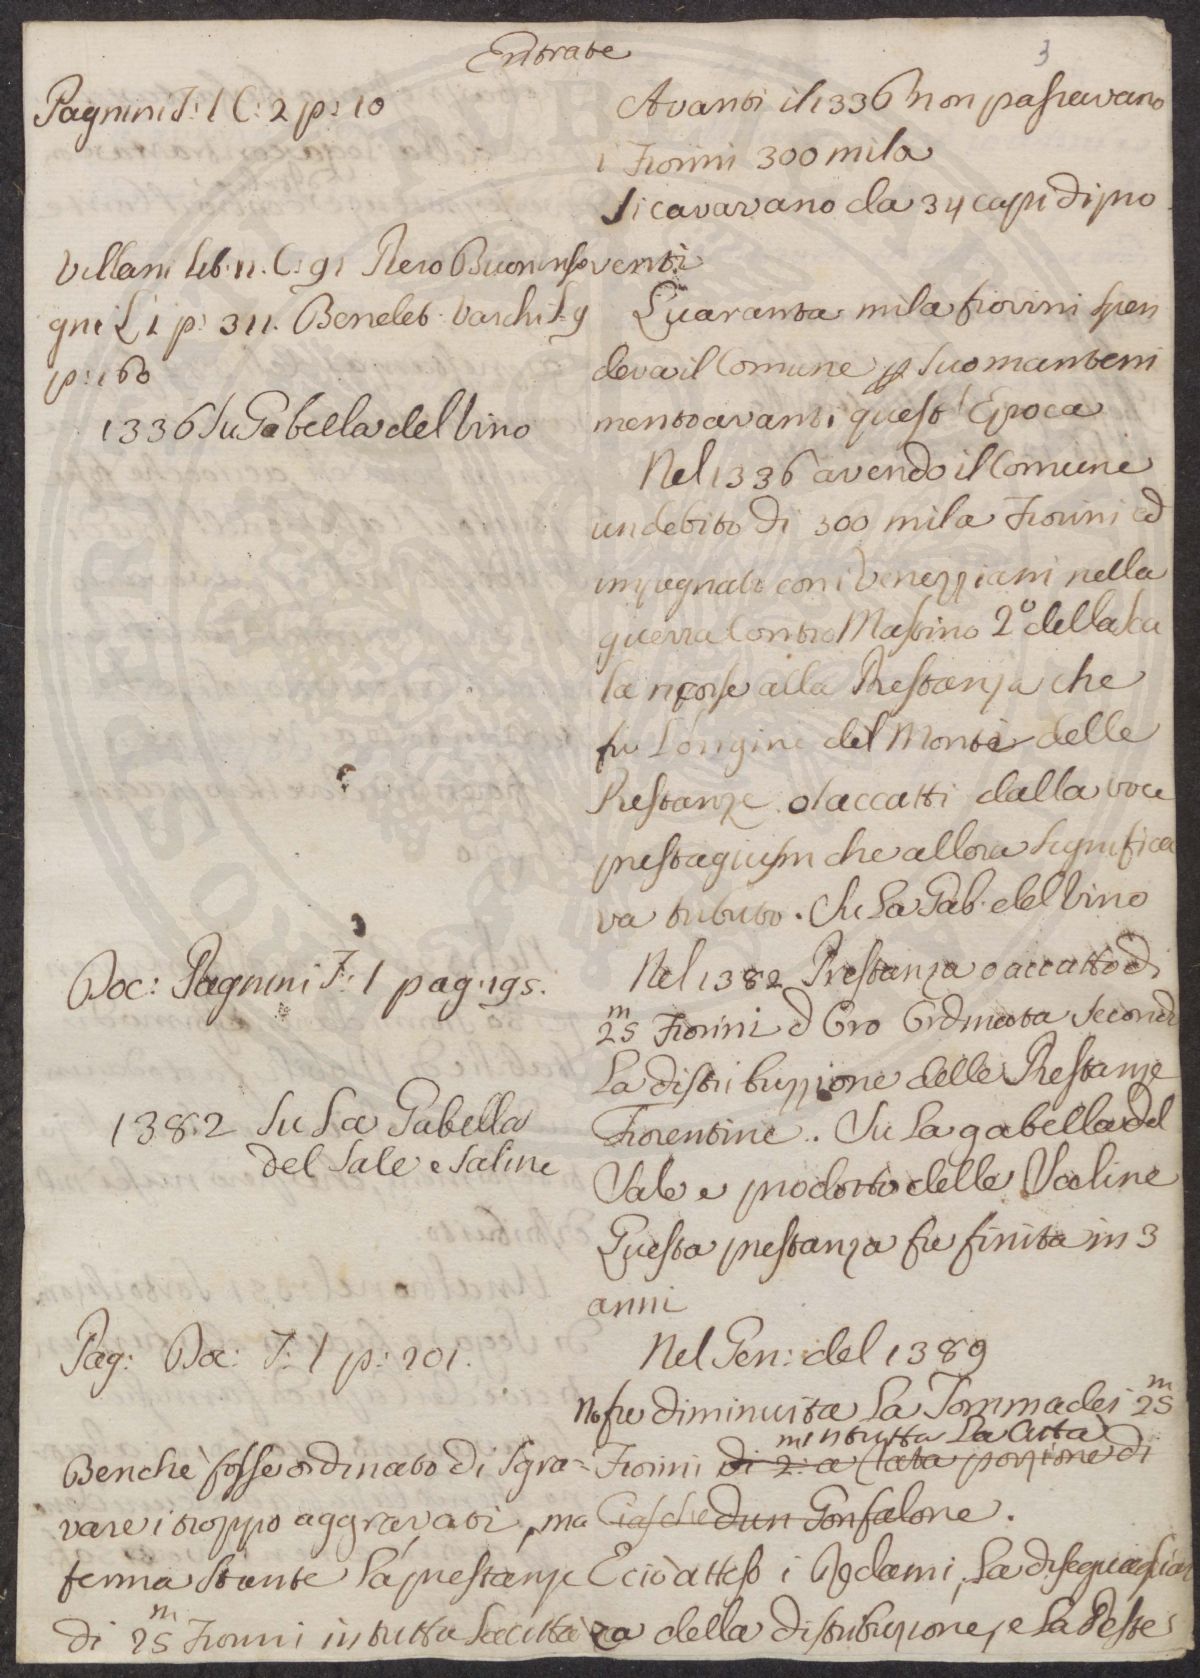 Entrate
3
Pagnini T: 1 C: 2 p: 10
Villani Lib: 11. C: 91 Piero Buoninse
gni L 1 p: 311. Bened. Varchi L 9
p: 160
1336 Su Gabella del Vino
Doc: Pagnini T: 1 pag. 195.
1382 Su La Gabella
del Sale e Saline
Pag: Doc: T: 1 p: 201.
Benchè fosse ordinato di sgra=
vare i troppo aggravati, ma
ferma stante la prestanze
di 25 m Fiorini in tutta la città
Avanti il 1336 non passavano
i Fiorini 300 mila
Si cavavano da 34 capi di pro
venti
Quaranta mila fiorini spen
deva il Comune p suo manteni
mento avanti quest'Epoca
Nel 1336 avendo il Comune
un debito di 300 mila Fiorini ed
impegnato con i Veneziani nella
guerra Contro Mastino 2º della Sca
la ricorse alla Prestanza che
fu L'origine del Monte delle
Prestanze o accatti dalla voce
prestagium che allora significa
va tributo. Su La Gab. del Vino
Nel 1382 Prestanza o accatto di
25 m Fiorini d'Oro Ordinata secondo
La distribuzzione delle Prestanze
Fiorentine. Su La gabella del
Sale e prodotto delle Saline
Questa prestanza fu finita in 3
anni
Nel Gen: del 1389
No fu diminuita La Somma dei 25 m
in tutta La Città
Fiorini di 2: a lata porzione di
Ciaschedun Gonfalone.
E ciò atteso i Reclami, la diseguaglian
za della distribuzione, e La Peste